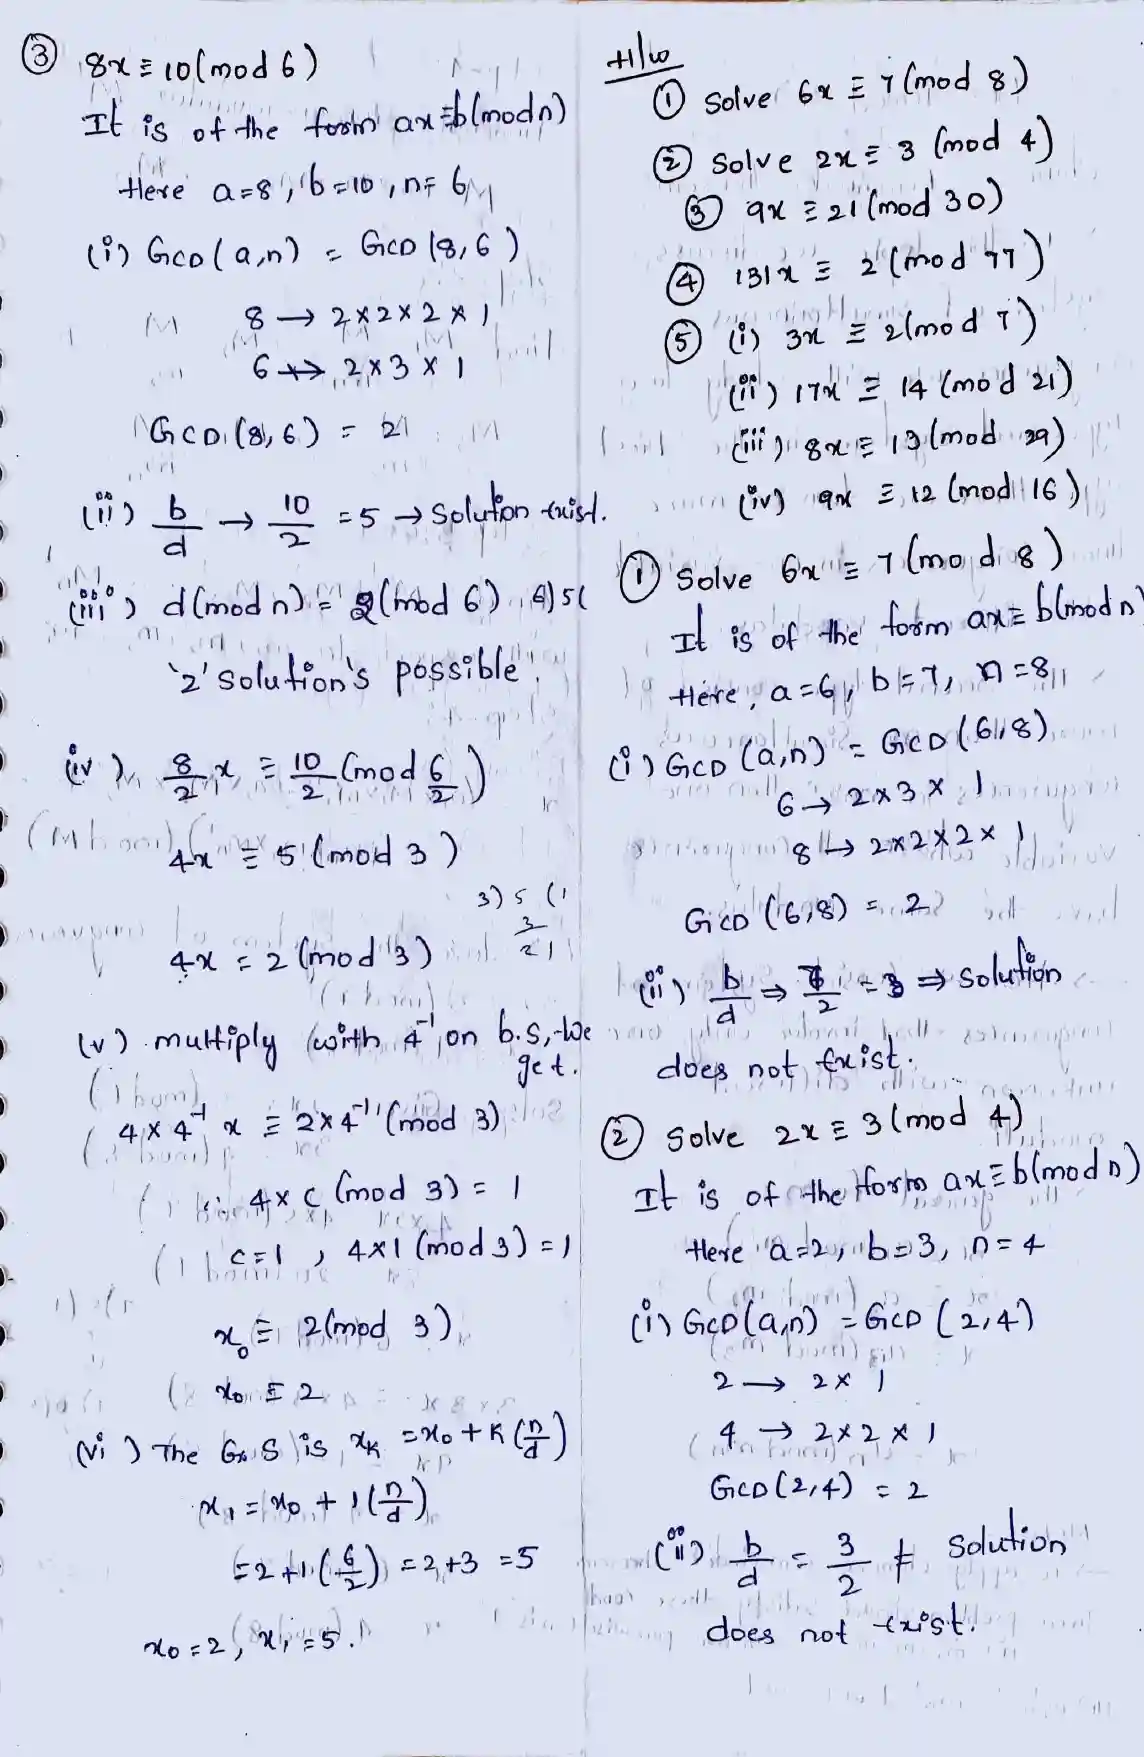 ③ 8x ≡ 10(mod 6)
It is of the form ax≡b(mod n)
Here a=8, b=10, n=6
(i) GCD(a,n) = GCD(8,6)
8 → 2×2×2×1
6 → 2×3×1
GCD(8,6) = 2
(ii) b/d → 10/2 = 5 → Solution exist.
(iii) d(mod n) = 2(mod 6) 6)5(
'2' solution's possible.
(iv) 8/2 x ≡ 10/2 (mod 6/2)
4x ≡ 5 (mod 3)
3) 5 (1
3
2
4x = 2 (mod 3)
(v) multiply with 4⁻¹ on b.s, we
get.
4×4⁻¹ x ≡ 2×4⁻¹ (mod 3)
4×c (mod 3) = 1
c=1, 4×1 (mod 3) = 1
x₀ ≡ 2(mod 3)
x₀ ≡ 2
(vi) The G.S is x_K = x₀ + K(n/d)
x₁ = x₀ + 1(n/d)
= 2+1(6/2) = 2+3 = 5
x₀ = 2, x₁ = 5.
H/W
① Solve 6x ≡ 7 (mod 8)
② Solve 2x ≡ 3 (mod 4)
③ 9x ≡ 21 (mod 30)
④ 131x ≡ 2 (mod 77)
⑤ (i) 3x ≡ 2(mod 7)
(ii) 17x ≡ 14 (mod 21)
(iii) 8x ≡ 13 (mod 29)
(iv) 9x ≡ 12 (mod 16)
① Solve 6x ≡ 7 (mod 8)
It is of the form ax≡b(mod n)
Here, a=6, b=7, n=8
(i) GCD (a,n) = GCD (6,8)
6 → 2×3×1
8 → 2×2×2×1
GCD (6,8) = 2
(ii) b/d ⇒ 7/2 = 3 ⇒ solution
does not exist.
② Solve 2x ≡ 3 (mod 4)
It is of the form ax≡b(mod n)
Here a=2, b=3, n=4
(i) GCD(a,n) = GCD (2,4)
2 → 2×1
4 → 2×2×1
GCD (2,4) = 2
(ii) b/d = 3/2 ≠ Solution
does not exist.